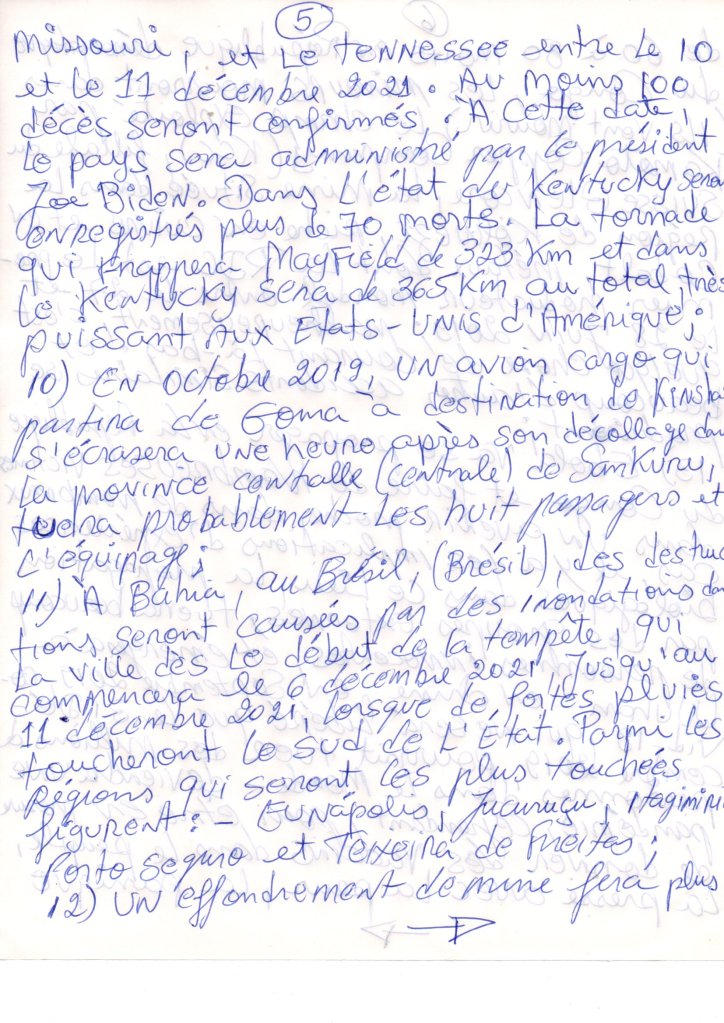 5
Missouri, et le Tennessee entre le 10
et le 11 décembre 2021. Au moins 100
décès seront confirmés. À cette date,
le pays sera administré par le président
Joe Biden. Dans l'état du Kentucky sera
enregistrés plus de 70 morts. La tornade
qui frappera Mayfield de 323 Km et dans
le Kentucky sera de 365 Km au total, très
puissant aux Etats-Unis d'Amérique;
10) En octobre 2019, un avion cargo qui
partira de Goma à destination de Kinsha
s'écrasera une heure après son décollage dan
la province contralle (centrale) de Sankuru,
tuera probablement les huit passagers et
l'équipage;
11) À Bahia, au Brésil, (Brésil), des destruc
tions seront causées par des inondations dan
la ville dès le début de la tempête, qui
commencera le 6 décembre 2021 jusqu'au
11 décembre 2021, lorsque de fortes pluies
toucheront le sud de l'État. Parmi les
régions qui seront les plus touchées
figurent:- Eunápolis, Jucuruçu, Itagimiri
Porto Seguro et Teixeira de Freitas;
12) Un effondrement de mine fera plus